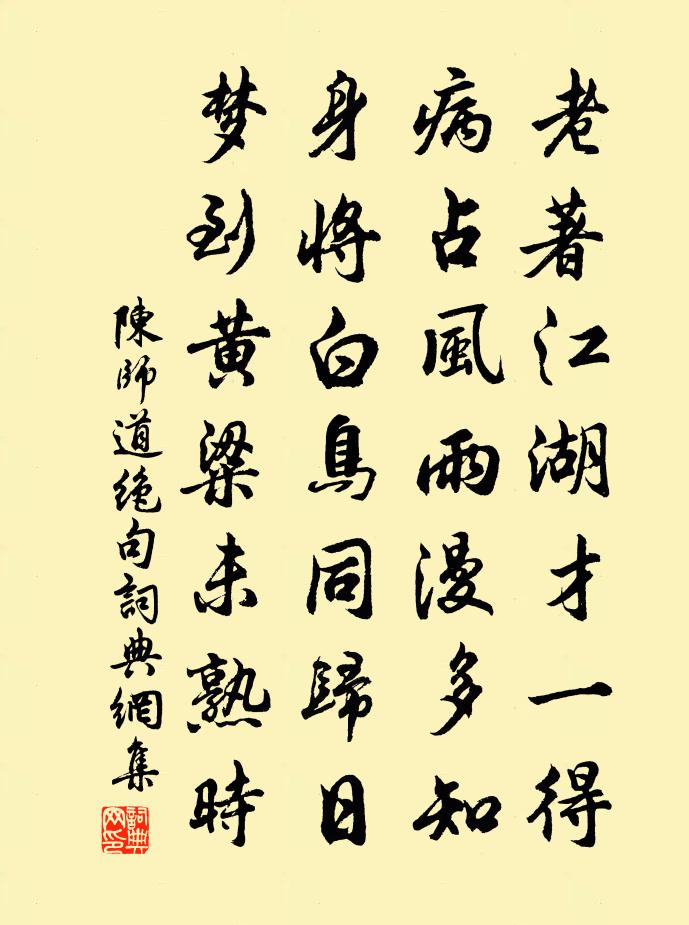 老著江湖才一得
病占風雨漫多知
身將白鳥同歸日
梦到黃粱未熟時
陳師道絶句詞典網集
詞典网印